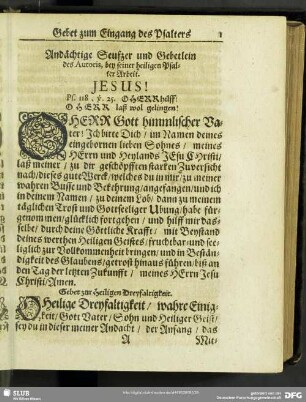 Gebet zum Eingang des Psalters 1
Andächtige Seufzer und Gebetlein
des Autoris, bey seiner heiligen Psal-
ter Arbeit.
JESUS!
Ps. 118. v. 25. O HERR hilff!
O HERR laß wol gelingen!
O HERR Gott himmlischer Va-
ter! Ich bitte Dich / im Namen deines
eingebornen lieben Sohnes / meines
HErrn und Heylands JEsu CHristi /
laß meiner / zu dir geschöpfften starcken Zuversicht
nach / dieses gute Werck / welches du in mir / zu meiner
wahren Busse und Bekehrung / angefangen / und ich
in deinem Namen / zu deinem Lob / dann zu meinem
täglichen Trost und Gottseliger Ubung / habe für-
genommen / glücklich fortgehen / und hilff mir das-
selbe / durch deine Göttliche Krafft / mit Beystand
deines werthen Heiligen Geistes / fruchtbar / und see-
liglich zur Vollkommenheit bringen / und in Bestän-
digkeit des Glaubens / getrost hinaus führen / biß an
den Tag der letzten Zukunfft / meines HErrn Jesu
Christi / Amen.
Gebet zur Heiligen Dreyfaltigkeit.
O Heilige Dreyfaltigkeit / wahre Einig-
keit / Gott Vater / Sohn und Heiliger Geist /
sey du in dieser meiner Andacht / der Anfang / das
A Mit-
SLUB
DFG